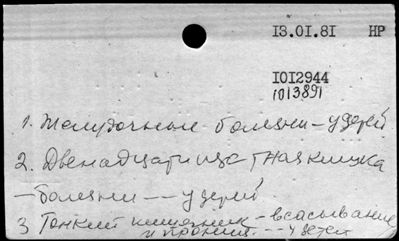 13.01.81 НР
1012944
1013891
1. Желудочные болезни – у детей
2. Двенадцатиперстная кишка
– болезни -- у детей
3 Тонкий кишечник – всасывание
и -- у детей